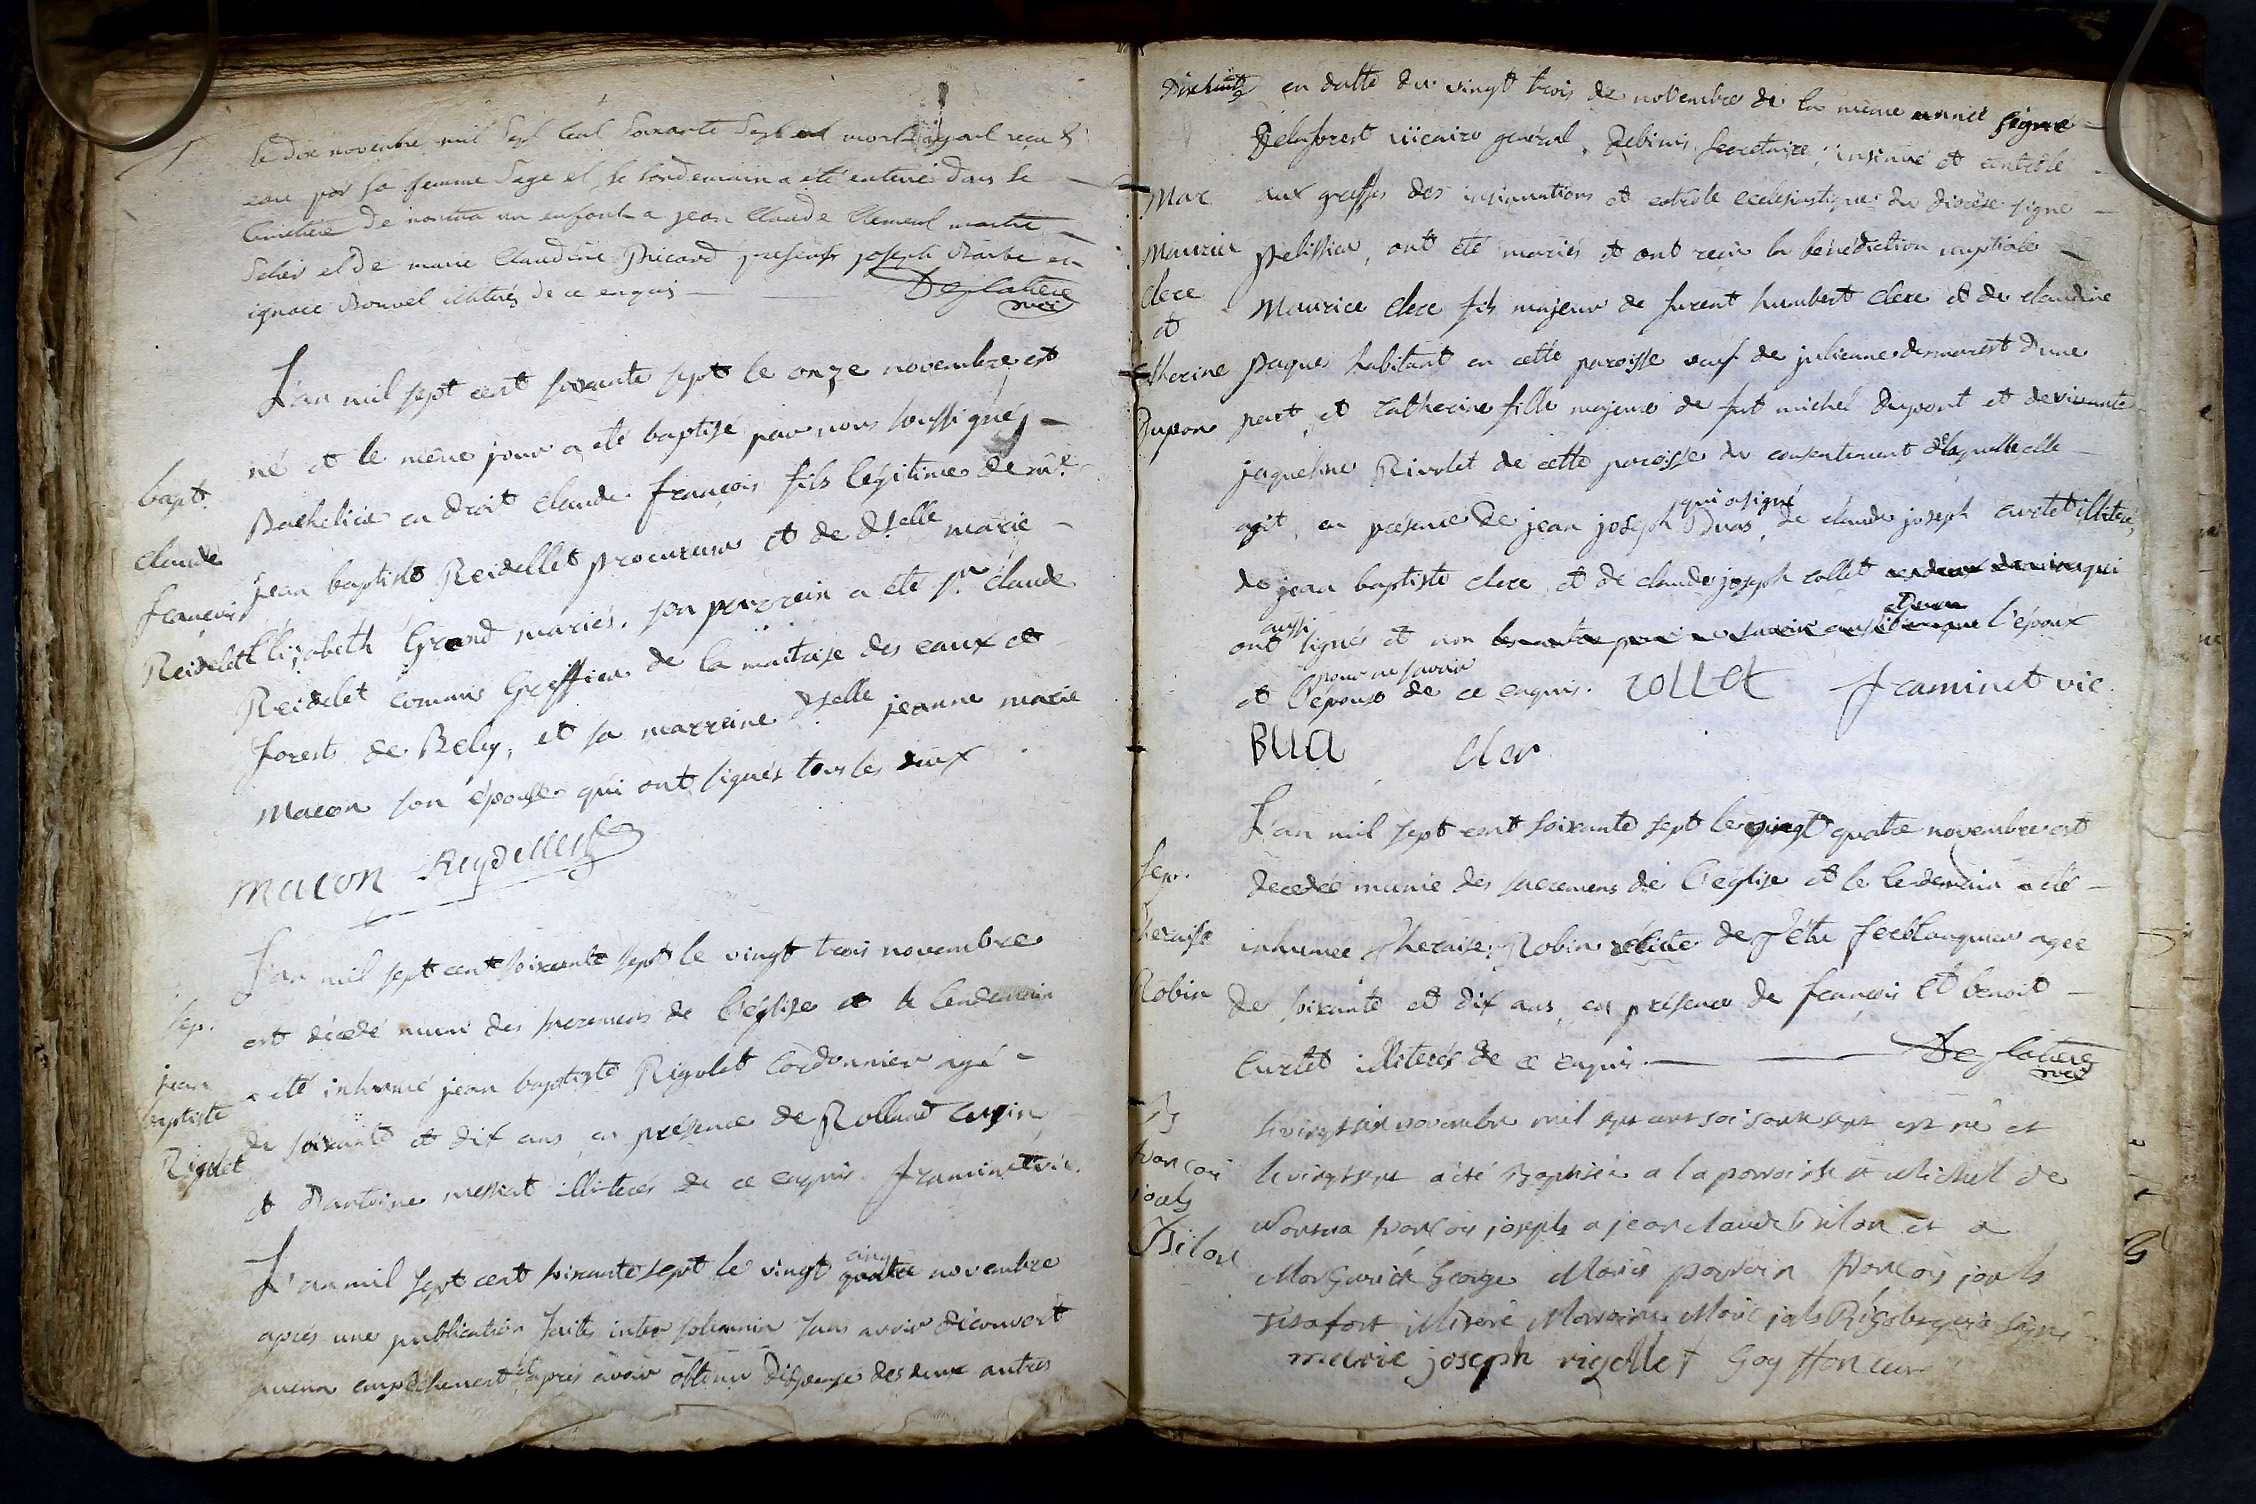 le dix novembre mil sept cent soixante sept est mort ayant reçu l'
eau par la femme sage et le lendemain a été enterré dans le
cimetière de nantua un enfant a jean Claude Clement maitre
Selier et de marie Claudine Picard presents joseph Barbe et
ignace Bonnel illiterés de ce enquis Deglatiere
L'an mil sept cent soixante sept le onze novembre est
né et le même jour a été baptisé par nous soussigné
Bachelier en droit claude françois fils légitime de mr
jean baptiste Reidellet procureur et de dselle marie
Elizabeth Grand mariés. son parrein a été sr. claude
Reidelet commis Greffier de la maitrise des eaux et
forests de Beley, et sa marreine dselle jeanne marie
Macon son épouse qui ont signés tous les deux
bapt.
claude
françois
Reidelet
macon Reydellet
L'an mil sept cent soixante sept le vingt trois novembre
est décedé muni des sacremens de l'église et le lendemain
a été inhumé jean baptiste Rigolet cordonnier agé
de soixante et dix ans en présence de Rolland
et D'antoine messiat illiterés de ce enquis framinet vic.
sep.
jean
baptiste
Rigolet
L'an mil sept cent soixante sept le vingt cinq quatre novembre
après une publication faite inter solemnia sans avoir découvert
aucun empêchement et après avoir obtenu dispense des deux autres
en datte du vingt trois de novembre de la même année signé
Delaforest viicaire général, secretaire, insinué et controlé
aux greffes des insinuations et controle ecclesiastique du diocese signé
pelissier, ont été mariés et ont reçu la bénédiction nuptiale
Maurice clerc fils majeur de furent humbert clerc et de claudine
paques habitant en cette paroisse veuf de julienne desmarest d'une
part, et catherine fille majeure de fut michel dupont et de vivante
jaqueline Rivolet de cette paroisse du consentement de laquelle elle
agit, en présence de jean joseph Buas, qui a signé de claude joseph curtet illiteré,
de jean baptiste clerc et de claude joseph collet qui
ont aussi signés et non l'époux
et l'epouse pour ne savoir de ce enquis. COLLET framinet vic.
Mar
Maurice
clerc
et
catherine
Dupon
BUA clerc
L'an mil sept cent soixante sept le vingt quatre novembre est
decedée munie des sacremens de l'église et le lendemain a été
inhumée theraise Robin agée
de soixante et dix ans, en présence de françois et benoit
Curtet illiterés de ce enquis. Deglatiere
sep.
theraise
Robin
le vingt six novembre mil sept cent soisante sept est né et
le vingt sept a été Baptisée a la parroisse st Michel de
Nantua françois joseph a jean claude Bilon et a
Marguerite George Mariés parrain françois joseph
illiteré Marraine Marie signé
françois
joseph
Bilon
marie joseph rigollet Goyffon curé